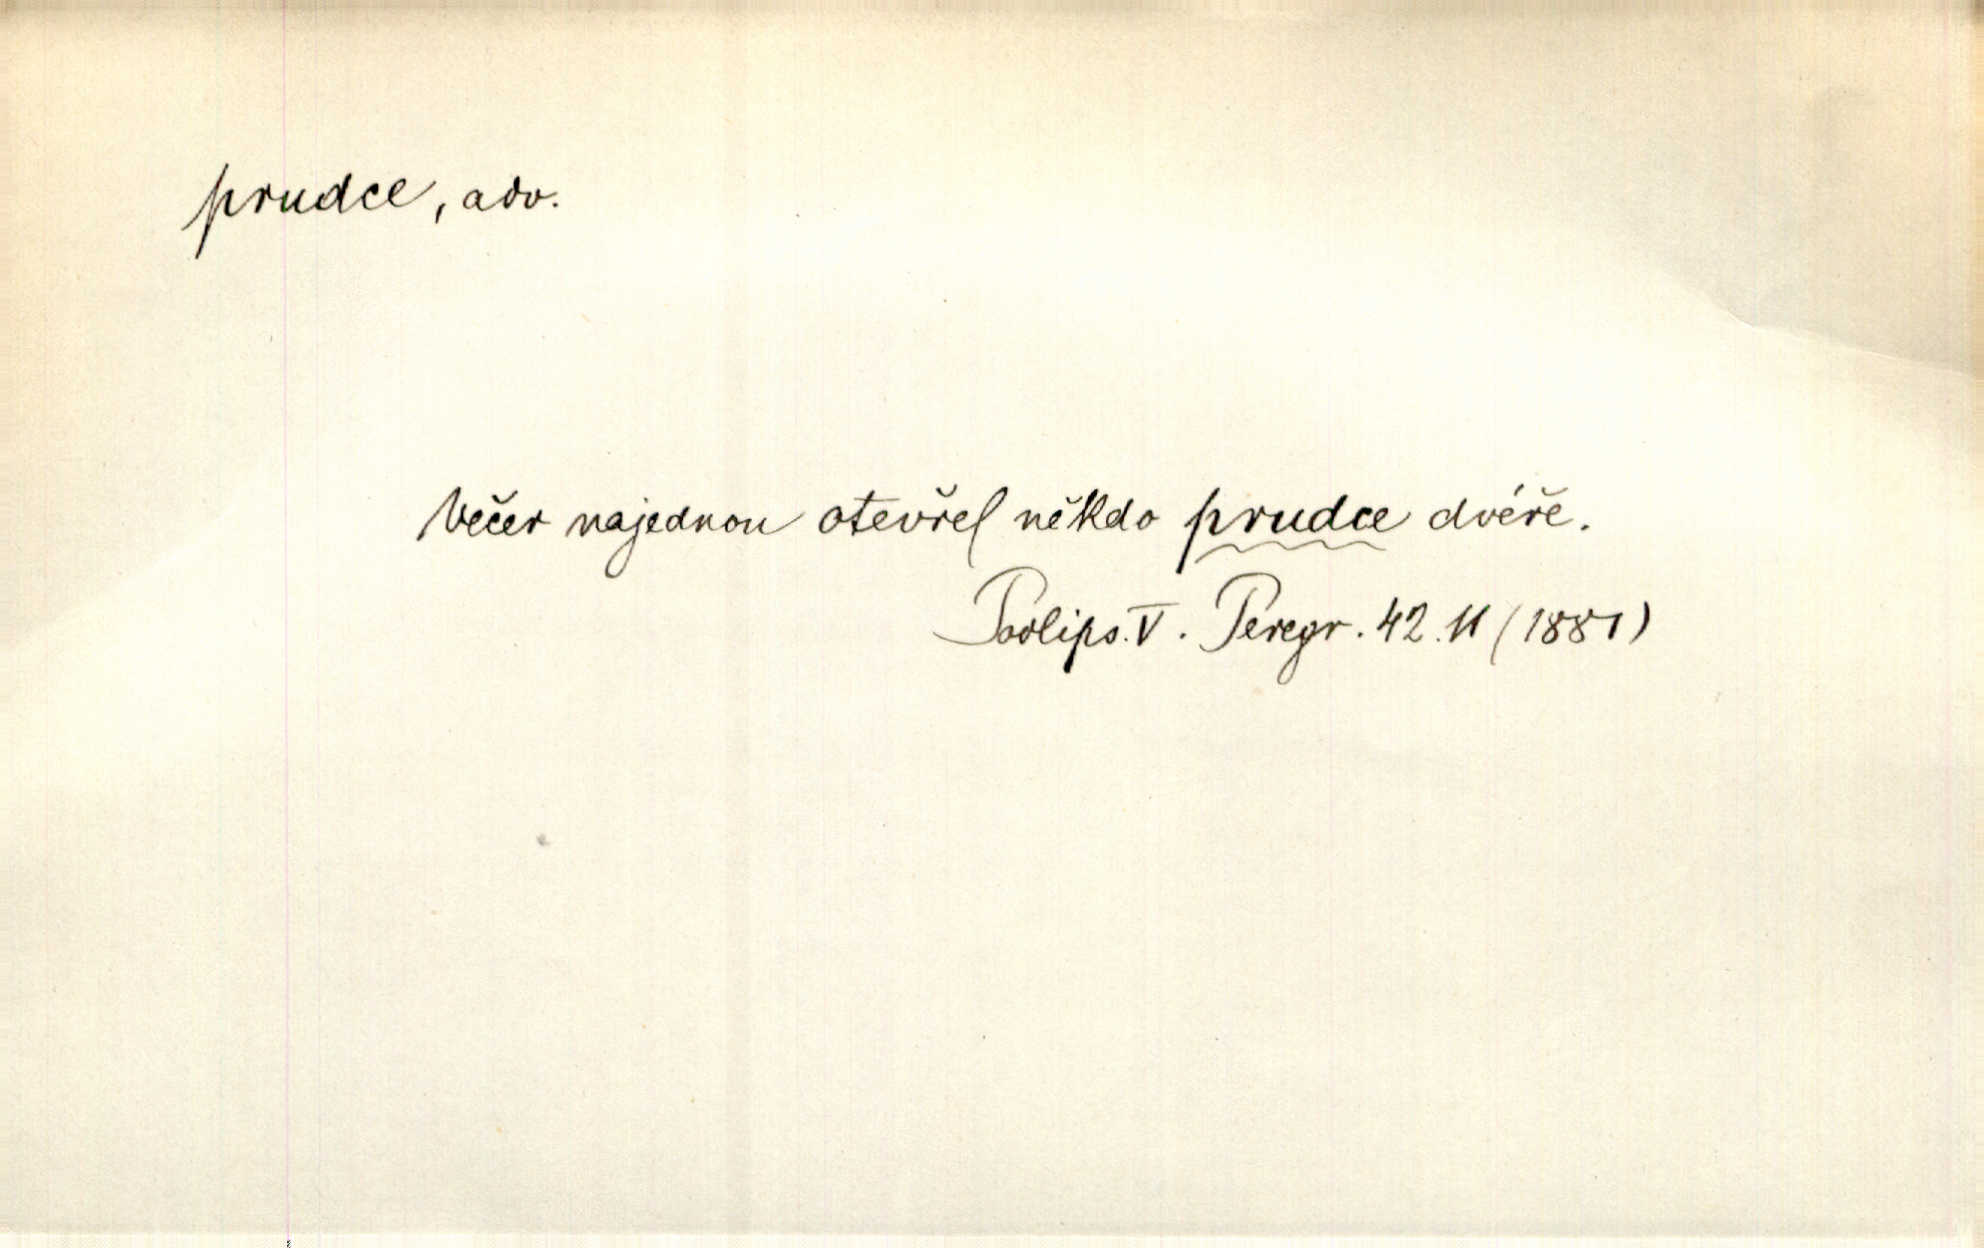 prudce, adv.
Večer najednou otevřel někdo prudce dvéře.
Podlips. V. Peregr. 42. 11 (1881)